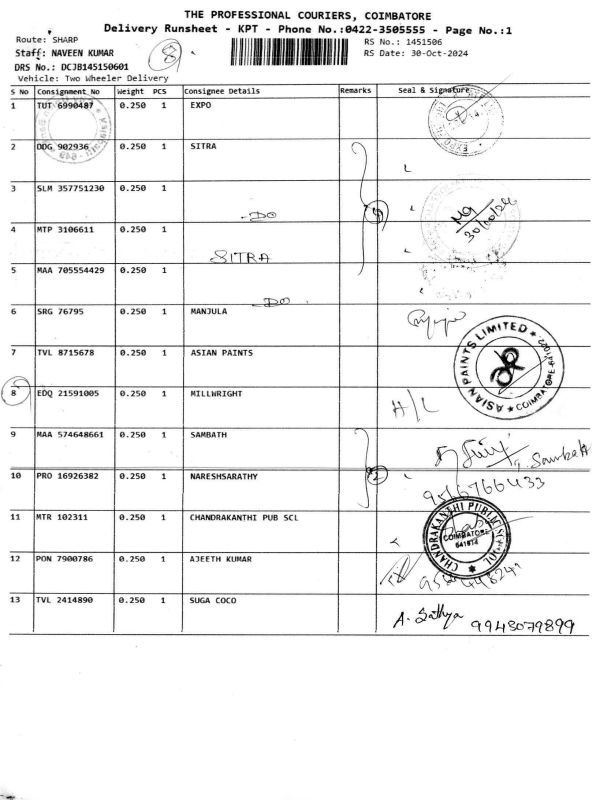 THE PROFESSIONAL COURIERS, COIMBATORE
Delivery Runsheet - KPT - Phone No.:0422-3505555 - Page No.:1
Route: SHARP
RS No.: 1451506
Staff: NAVEEN KUMAR
8
RS Date: 30-Oct-2024
DRS No.: DCJB145150601
Vehicle: Two Wheeler Delivery
S No Consignment No Weight PCS Consignee Details Remarks Seal & Signature
1 TUT 6990487 0.250 1 EXPO
2 DDG 902936 0.250 1 SITRA
3 SLM 357751230 0.250 1
DO
4 MTP 3106611 0.250 1
SITRA
5 MAA 705554429 0.250 1
DO
6 SRG 76795 0.250 1 MANJULA
7 TVL 8715678 0.250 1 ASIAN PAINTS
ASIAN PAINTS LIMITED
8 EDQ 21591005 0.250 1 MILLWRIGHT H/L
9 MAA 574648661 0.250 1 SAMBATH
10 PRO 16926382 0.250 1 NARESHSARATHY 2
11 MTR 102311 0.250 1 CHANDRAKANTHI PUB SCL
CHANDRAKANTHI PUBLIC
COIMBATORE
641014
12 PON 7900786 0.250 1 AJEETH KUMAR
13 TVL 2414890 0.250 1 SUGA COCO
A. Sathya 9943079899